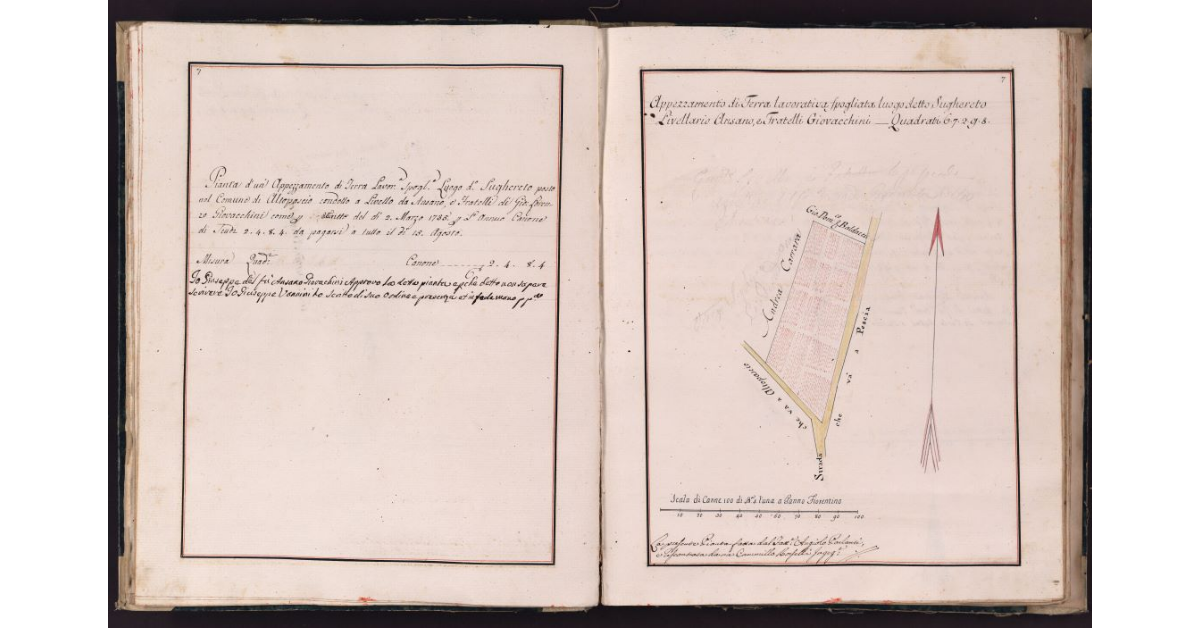 7
Pianta d'un Appezzamento di Terra Lavor: Spogl: Luogo d: Sughereto posto
nel Comune di Altopascio condotto a Livello da Ansano, e Fratelli di Gio: Loren
zo Giovacchini come p del dì 2. Marzo 1785. p l'Annuo Canone
di Scudi 2. 4. 8. 4. da pagarsi a tutto il dì 15. Agosto.
Misura Quad:
Canone 2. 4. 8. 4
Io Giuseppe del fu Ansano Giovachini Approvo la detta pianta e p che detto non sa pure
scrivere Io Giuseppe Vannini ho scritto di suo ordine e presenza et in fede mano pp
7
Appezzamento di Terra lavorativa spogliata luogo detto Sughereto
Livellario Ansano, e Fratelli Giovacchini Quadrati 6. 7. 2. 9. 8.
Gio: Dom: Balducci
Andrea Carrara
che va a Altopascio
che và a Pescia
Strada
Scala di Canne 100 di 5 l'una a Panno Fiorentino
10 20 30 40 50 60 70 80 90 100
La presente Pianta fatta dal
e riscontrata da me Cammillo